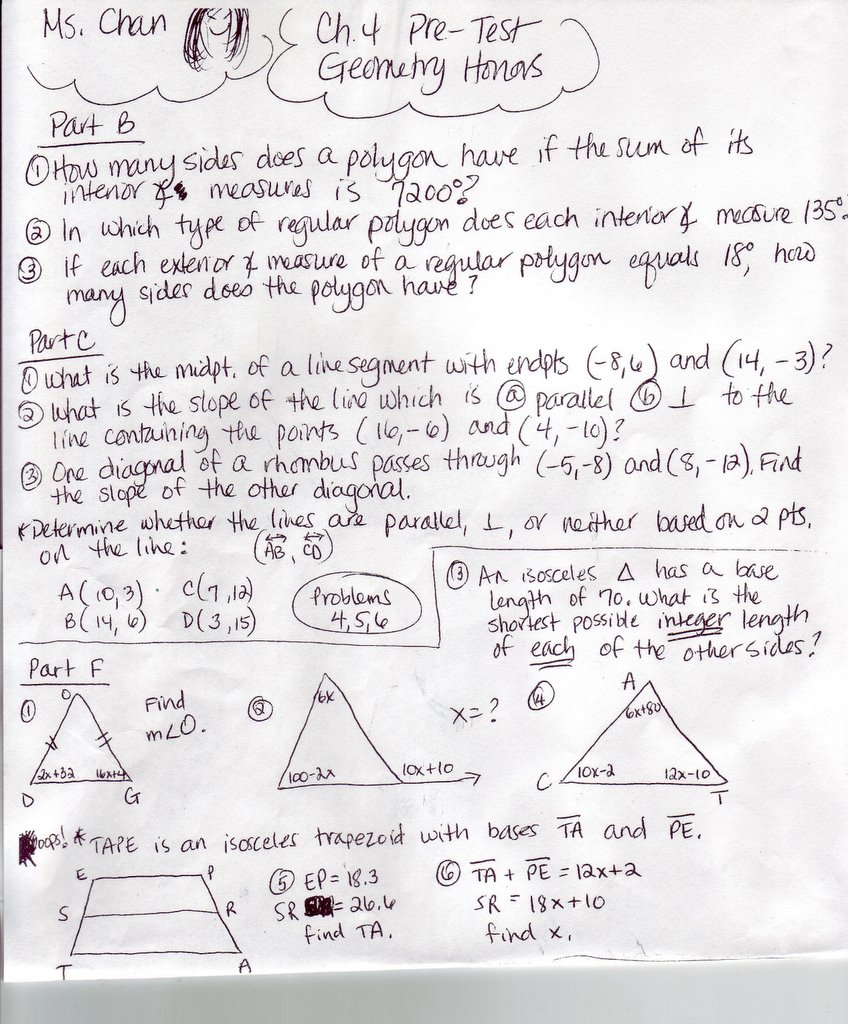 Ms. Chan
Ch.4 Pre-Test
Geometry Honors
Part B
① How many sides does a polygon have if the sum of its
interior ∡s measures is 7200°?
② In which type of regular polygon does each interior ∡ measure 135°?
③ If each exterior ∡ measure of a regular polygon equals 18°, how
many sides does the polygon have?
Part C
① What is the midpt. of a line segment with endpts (-8,6) and (14, -3)?
② What is the slope of the line which is ⓐ parallel ⓑ ⊥ to the
line containing the points (16,-6) and (4,-10)?
③ One diagonal of a rhombus passes through (-5,-8) and (8,-12). Find
the slope of the other diagonal.
*Determine whether the lines are parallel, ⊥, or neither based on 2 pts.
on the line: (AB, CD)
A(10,3) C(7,12)
B(14,6) D(3,15)
Problems
4,5,6
⑬ An isosceles Δ has a base
length of 70. What is the
shortest possible integer length
of each of the other sides?
Part F
① O
Find
m∠O.
2x+32 16x+4
D G
②
6x
x=?
100-2x 10x+10
④ A
6x+80
C 10x-2 12x-10 T
oops! * TAPE is an isosceles trapezoid with bases TA and PE.
E P
S R
T A
⑤ EP = 18.3
SR = 26.6
find TA.
⑥ TA + PE = 12x+2
SR = 18x+10
find x.